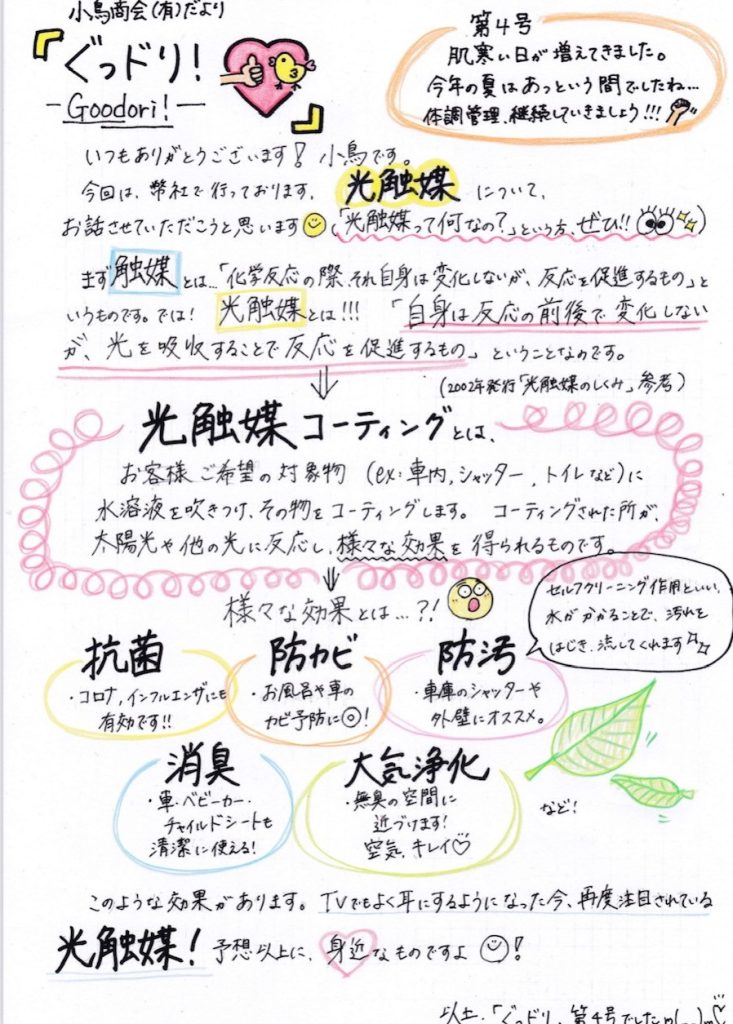 小鳥商会(有)だより
『ぐっドリ!
-Goodori!-
』
第4号
肌寒い日が増えてきました。
今年の夏はあっという間でしたね…
体調管理、継続していきましょう!!!
いつもありがとうございます! 小鳥です。
今回は、幣社で行っております、光触媒について、
お話させていただこうと思います(「光触媒って何なの?」という方、ぜひ!!)
まず触媒とは…「化学反応の際、それ自身は変化しないが、反応を促進するもの」と
いうものです。では! 光触媒とは!!! 「自身は反応の前後で変化しない
が、光を吸収することで反応を促進するもの」ということなのです。
(2002年発行「光触媒のしくみ」参考)
光触媒コーティングとは、
お客様ご希望の対象物 (ex:車内,シャッター,トイレなど)に
水溶液を吹きつけ、その物をコーティングします。 コーティングされた所が、
太陽光や他の光に反応し、様々な効果を得られるものです。
様々な効果とは…?!
セルフクリーニング作用といい、
水がかかることで、汚れを
はじき、流してくれます
抗菌
・コロナ,インフルエンザにも
有効です!!
防カビ
・お風呂や車の
カビ予防に◎!
防汚
・車庫のシャッターや
外壁にオススメ。
消臭
・車・ベビーカー・
チャイルドシートも
清潔に使える!
大気浄化
・無臭の空間に
近づけます!
空気、キレイ♡
など!
このような効果があります。TVでもよく耳にするようになった今、再度注目されている
光触媒! 予想以上に、身近なものですよ!
以上、「ぐっドリ」第4号でした m(__)m♡